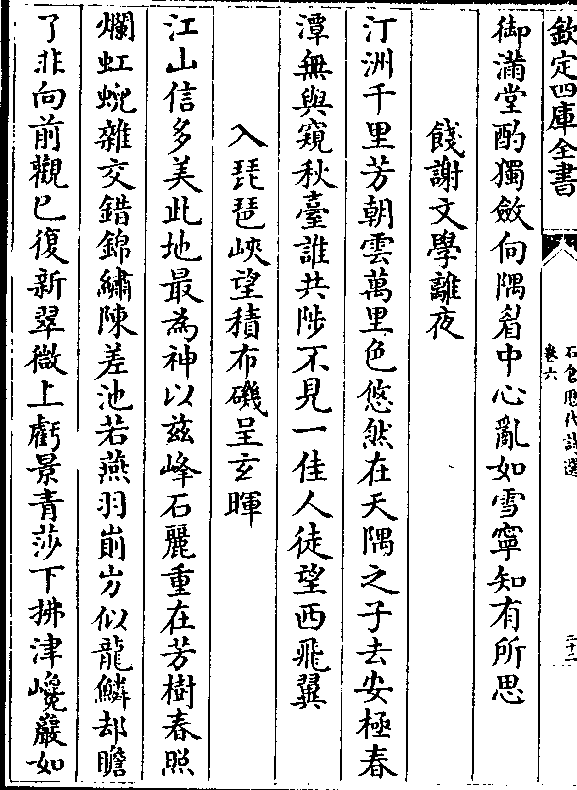 欽定四庫全書
石倉歷代詩選
卷六
三十二
御滿堂酌獨斂向隅眉中心亂如雪寧知有所思
餞謝文學離夜
汀洲千里芳朝雲萬里色悠然在天隅之子去安極春
潭無與窺秋臺誰共陟不見一佳人徒望西飛翼
入琵琶峽望積布磯呈玄暉
江山信多美此地最為神以茲峰石麗重在芳樹春照
爛虹蜺雜交錯錦繡陳差池若燕羽崱屴似龍鱗却瞻
了非向前觀已復新翠微上虧景青莎下拂津巉巖如